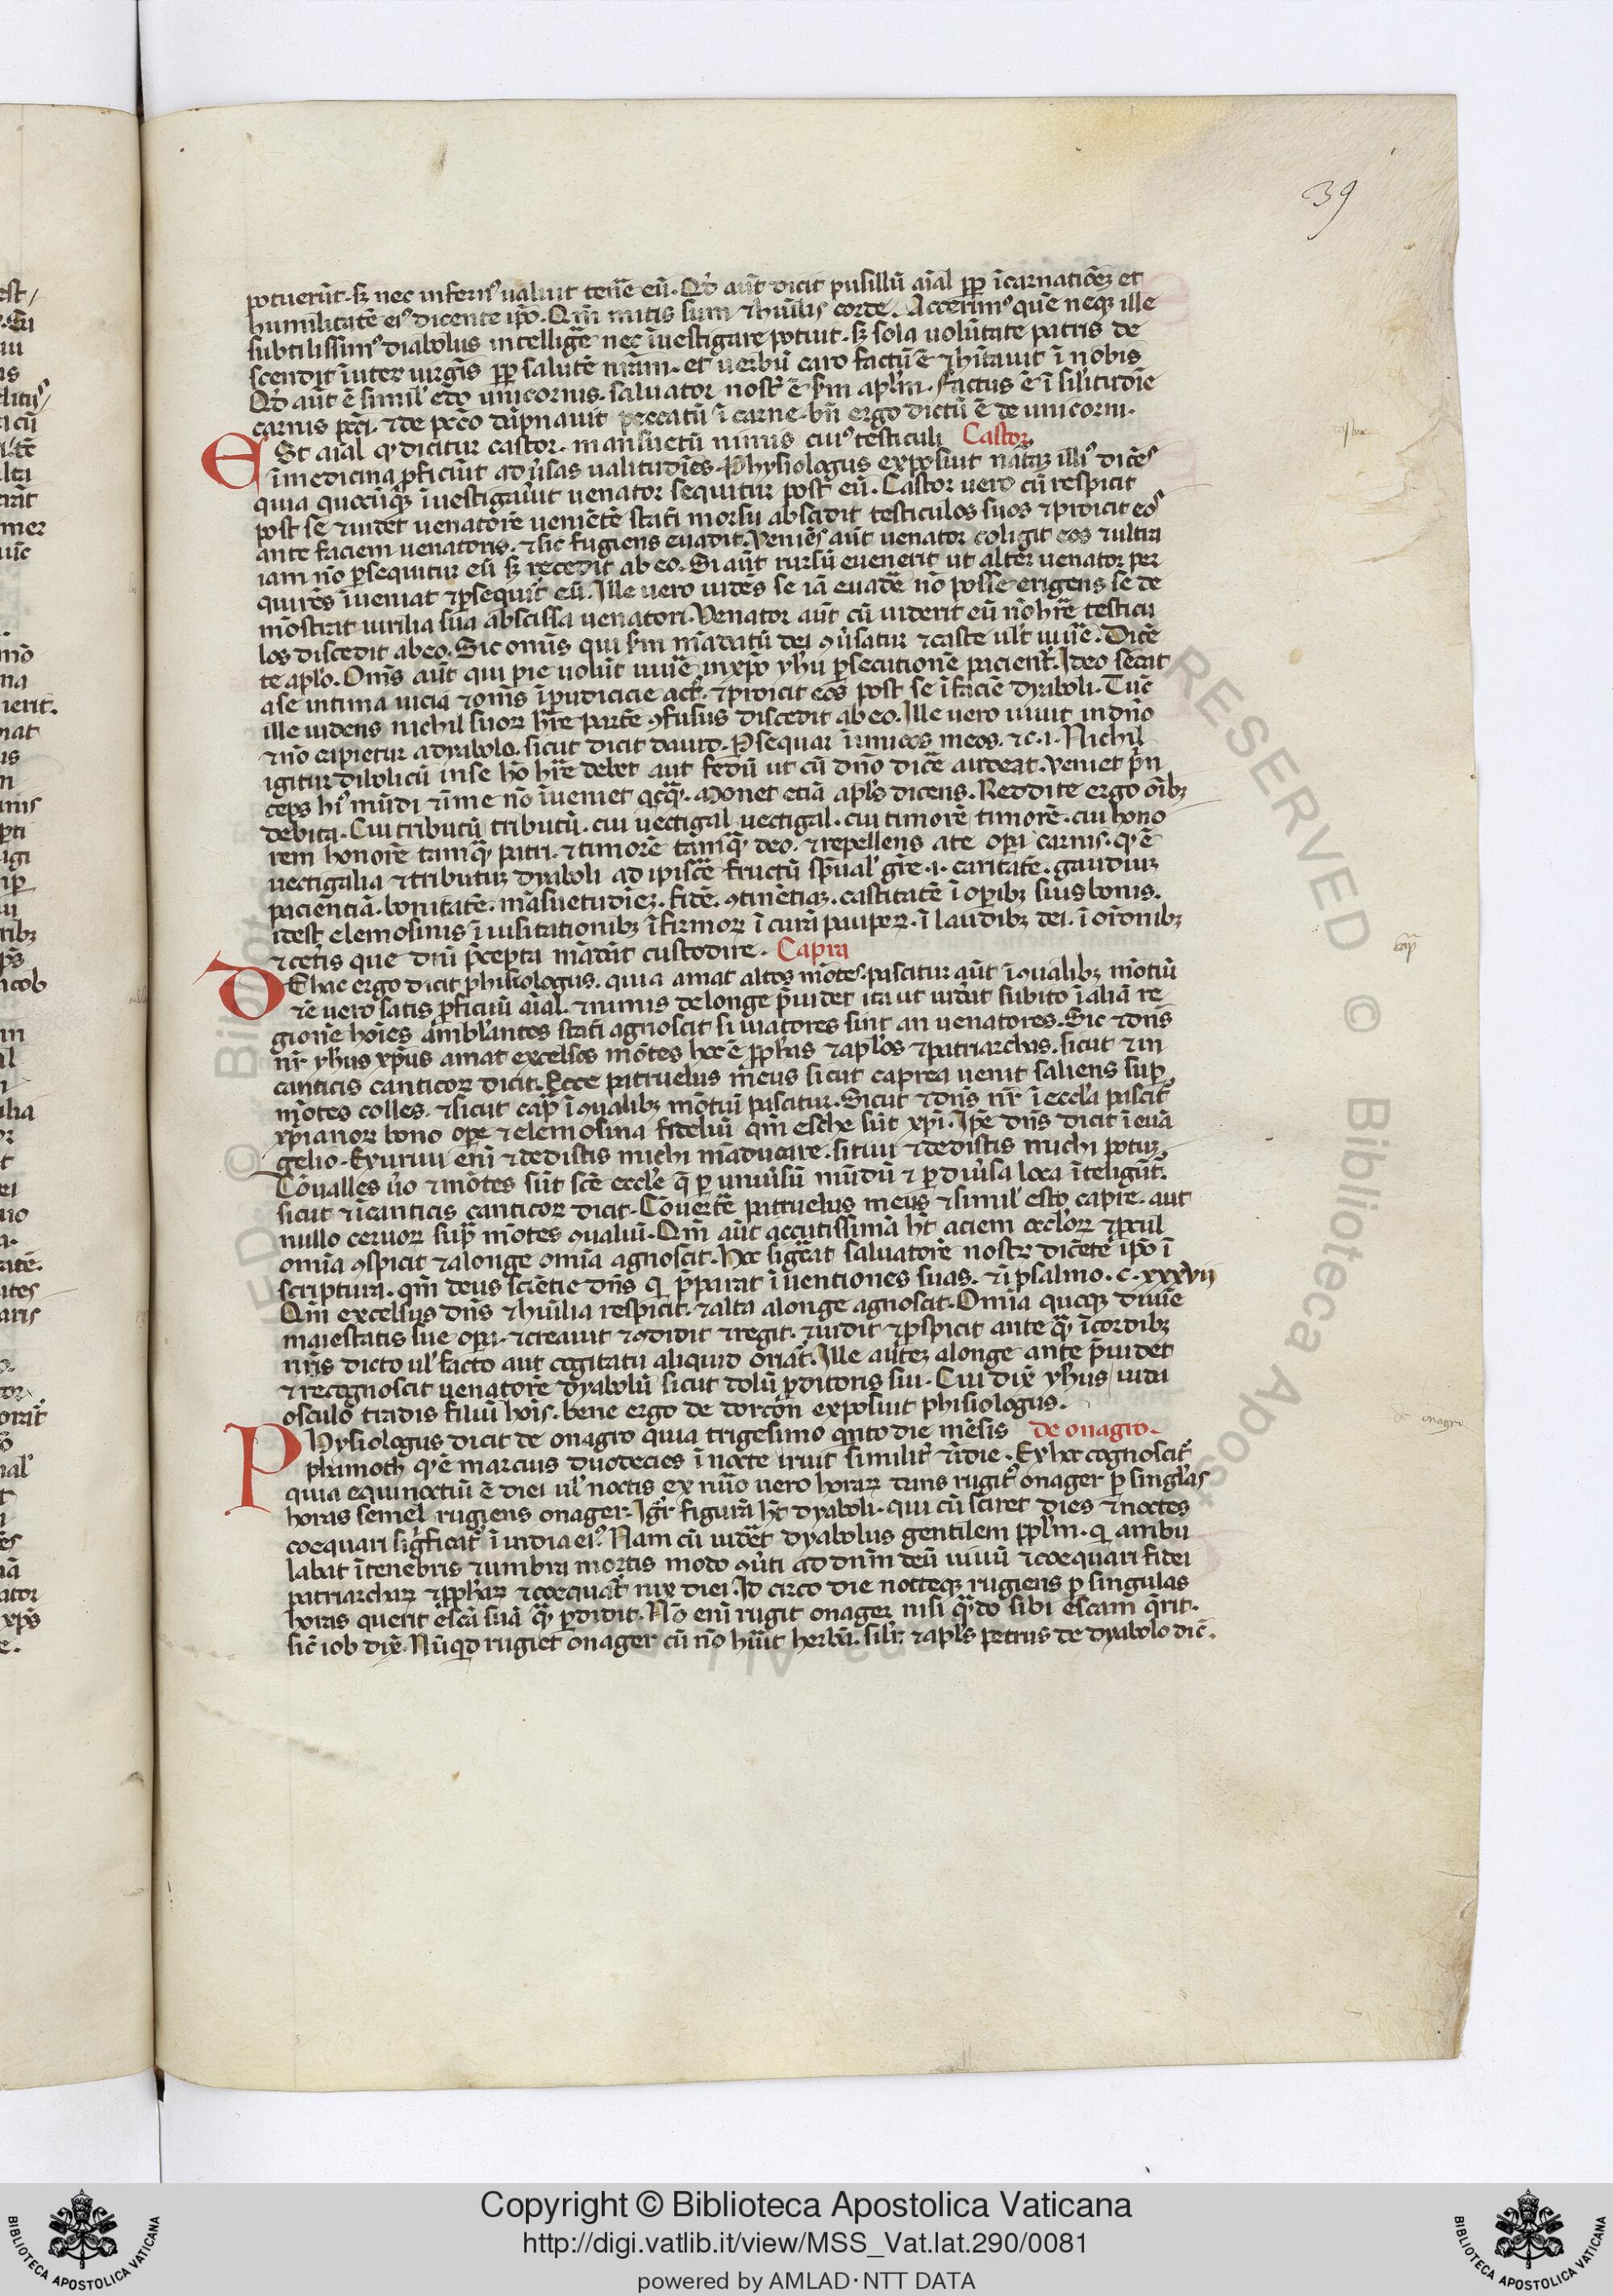 39
potuerūt. sꝫ nec infernꝰ ualuit tenēe eū. Qd̓ aūt dicit pusillū aīal ꝓp̄ īcarnatiōeꝫ et
humilitatē eiꝰ dicente ip̄o. Qm̄ mitis sum ⁊ hūilis corde. Accerimꝰ quē neqꝫ ille
subtilissimꝰ diabolus intelligēe nec īuestigare potuit. sꝫ sola uolūtate patris de
scendit īuterū uirgīs ꝓp̄ salutē nr̄am. et uerbū caro factū ē ⁊ hītauit ī nobis
Qd̓ aūt ē simil̓ edo unicornus. saluator nost̓ ē sm̄ apl̄m. Factus ē ī sil̓itudīe
carnis pcc̄i. ⁊ de pcc̄o dāpnauit peccatū ī carne. bn̄ ergo dictū ē de unicorni.
ESt aīal qd̓ dicitur castor. mansuetū nimis cuiꝰ testiculi Castor
ī medicina ꝓficiūt ad ūsas ualitudīes. Physiologus exposuit nāꝫ illiꝰ dicēs
quia quocūqꝫ īuestigauīt uenator sequitur post eū. Castor uero cū respicit
post se ⁊ uidet uenatorē ueniētē statī morsu abscidit testiculos suos ⁊ proicit eos
ante faciem uenatoris. ⁊ sic fugiens euadit. Veniēs aūt uenator coligit eos ⁊ ultra
iam nō ꝑsequitur eū sꝫ recedit ab eo. Si aūt rursū euenerit ut alter̓ uenator per
quirēs īueniat ⁊ ꝑsequit̓ eū. Ille uero uidēs se iā euadēe nō posse erigens se de
mōstrat uirilia sua abscissa uenatori. Venator aūt cū uiderit eū nō hr̄e testicu
los discedit ab eo. Sic omīs qui sm̄ mādatū dei ꝯūsatur ⁊ caste uult uiuēe. Dicē
te apl̄o. Om̄s aūt qui pie uolūt uiuēe in xp̄o yh̄u ꝑsecutionē pacient̓. Ideo secat
a se intima uicia ⁊ om̄s īpudicicie act̓. ⁊ proicit eos post se ī faciē dyaboli. Tūc
ille uidens nichil suoꝝ hr̄e partē ꝯfusus discedit ab eo. Ille uero uiuit in dn̄o
⁊ nō capietur a dyabolo. sicut dicit dauid. Ꝑsequar īimicos meos. ⁊c. i. Nichil
igitur dibolicū in se hō hr̄e debet aut fedū ut cū dn̄o dicēe audeat. Veniet p̄n
ceps hiꝰ mūdi ⁊ ī me nō īueniet qcq̄ꝫ. Monet etiā apl̄s dicens. Reddite ergo oībꝫ
debita. Cui tributū tributū. cui uectigal uectigal. cui timorē timorē. cui hono
rem honorē tamq̄ꝫ patri. ⁊ timorē tamq̄ꝫ deo. ⁊ repellens a te opa̓ carnis. qd̓ ē
uectigalia ⁊ tributuꝫ dyaboli adipiscēe fructū sp̄ual̓ grē. i. caritatē. gaudiuꝫ
pacientiā. bonitatē. māsuetudīeꝫ. fidē. ꝯtinētiaꝫ. castitatē ī oꝑibꝫ suis bonis.
idest elemosinis ī uisitationibꝫ īfirmoꝝ ī cura paupeꝝ. ī laudibꝫ dei. ī orōnibꝫ
⁊ cet̓is que dn̄i p̄cepta mādāt custodire. Capra
DE hac ergo dicit phisiologus. quia amat altos mōtes. pascitur aūt ī ꝯualibꝫ mōtiū
⁊ ē uero satis ꝓficuū aīal. ⁊ nimis de longe p̄uidet ita ut uidēat subito ī aliā re
gionē hoīes ambl̄antes statī agnoscit si uiatores sint an uenatores. Sic ⁊ dn̄s
nr̄ yh̄us xp̄us amat excelsos mōtes hoc ē ꝓph̄as ⁊ apl̄os ⁊ patriarchas. sicut ⁊ in
canticis canticoꝝ dicit. Ecce patruelus meus sicut caprea uenit saliens suꝑ
mōtes colles. ⁊ sicut capa̓ ī ꝯualibꝫ mōtiū pascitur. Sicut ⁊ dn̄s nr̄ ī eccl̄a pascit̓
xp̄ianoꝝ bono oꝑe ⁊ elemosina fideliū qm̄ esche sūt xp̄i. Ip̄e dn̄s dicit ī euā
gelio. Exuriui eni ⁊ dedistis michi māducare. sitiui ⁊ dedistis michi potuꝫ.
Cōualles ūo ⁊ mōtes sūt scē eccl̄e q̄ ꝑ uniūsū mūdū ⁊ ꝑ diūsa loca īteligūt̓.
sicut ⁊ ī canticis canticoꝝ dicit. Cōuertēe patruelus meus ⁊ simil̓ esto capre. aut
nullo ceruoꝝ suꝑ mōtes ꝯualiū. Qm̄ aūt accutissimā ht̄ aciem oculoꝝ ⁊ ꝓcul
omīa ꝯspicit ⁊ a longe omīa agnoscit. Hoc sigcāt saluatorē nostꝝ dicētē ip̄o ī
scriptura. qm̄ deus sciētie dn̄s q̓ p̄parat īuentiones suas. ⁊ ī psalmo. c. xxxvii
Qm̄ excelsus dn̄s ⁊ hūilia respicit. ⁊ alta a longe agnoscit. Omīa quoqꝫ diuīe
maiestatis sue opa̓. ⁊ creauit ⁊ ꝯdidit ⁊ regit. ⁊ uidit ⁊ ꝑspicit ante q̄ꝫ ī cordibꝫ
nr̄is dicto ul̓ facto aut cogitatu aliquid oriat̓. Ille aūteꝫ a longe ante p̄uidet
⁊ recognoscit uenatorē dyabolū sicut dolū ꝓditoris sui. Cui dix̄ yh̄us iuda
osculo tradis filiū hoīs. bene ergo de dorcōn exposuit phisiologus.
PHysiologus dicit de onagro quia trigesimo qn̄to die mēsis de onagro.
phamoth qd̓ ē marcius duodecies ī nocte iruit similit̓ ⁊ ī die. Ex hoc cognoscit̓
quia equinoctiū ē diei ul̓ noctis ex nūo uero horaꝝ dans rugit̓ onager ꝑ singl̄as
horas semel rugiens onager. Igr̄ figurā ht̄ dyaboli. qui cū sciret dies ⁊ noctes
coequari sigficat̓ ī uidia eiꝰ. Nam cū uidet̓ dyabolus gentilem ppl̄m. q̓ ambu
labat ī tenebris ⁊ umbra mortis modo ꝯūti ad dn̄m deū uiuū ⁊ coequari fidei
patriarchaꝝ ⁊ ꝓph̄aꝝ ⁊ coequat̓ nox diei. Id circo die nocteqꝫ rugiens ꝑ singulas
horas querit escā suā quā ꝑdidit. Nō eni rugit onager nisi q̄ꝫdo sibi escam q̄rit.
sic̄ iob dix̄. Nūqd̓ rugiet onager cū nō hūit herbā. sil̓r. ⁊ apl̄s petrus de dyabolo dic̄.
castor
capa̓
de onagro
Copyright © Biblioteca Apostolica Vaticana
http://digi.vatlib.it/view/MSS_Vat.lat.290/0081
powered by AMLAD · NTT DATA
BIBLIOTECA APOSTOLICA VATICANA
BIBLIOTECA APOSTOLICA VATICANA